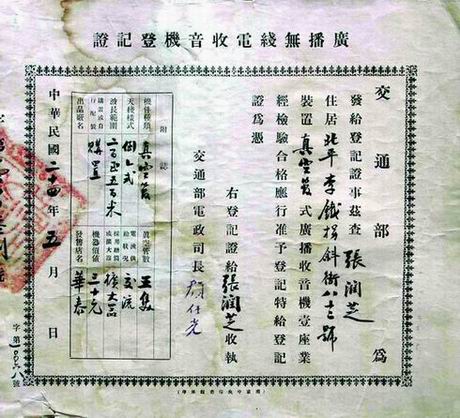 廣播無綫電收音機登記證
交通部
發給登記證事茲查 張潤芝 為
住居 北平李鐵拐斜街八十三號
裝置 真空管 式廣播收音機壹座業
經檢驗合格應行准予登記特給登記
證為憑
右登記證給張潤芝收執
交通部電政司長 顏任光
附誌
機件種類 真空管 真空管數 五隻
天綫樣式 電流供給狀況 交流
波長範圍 二百至五百米 擴大器
購置 機器價值 三十元
出品廠名 發售店名 華泰
中華民國二十四年五月 日
字第 號